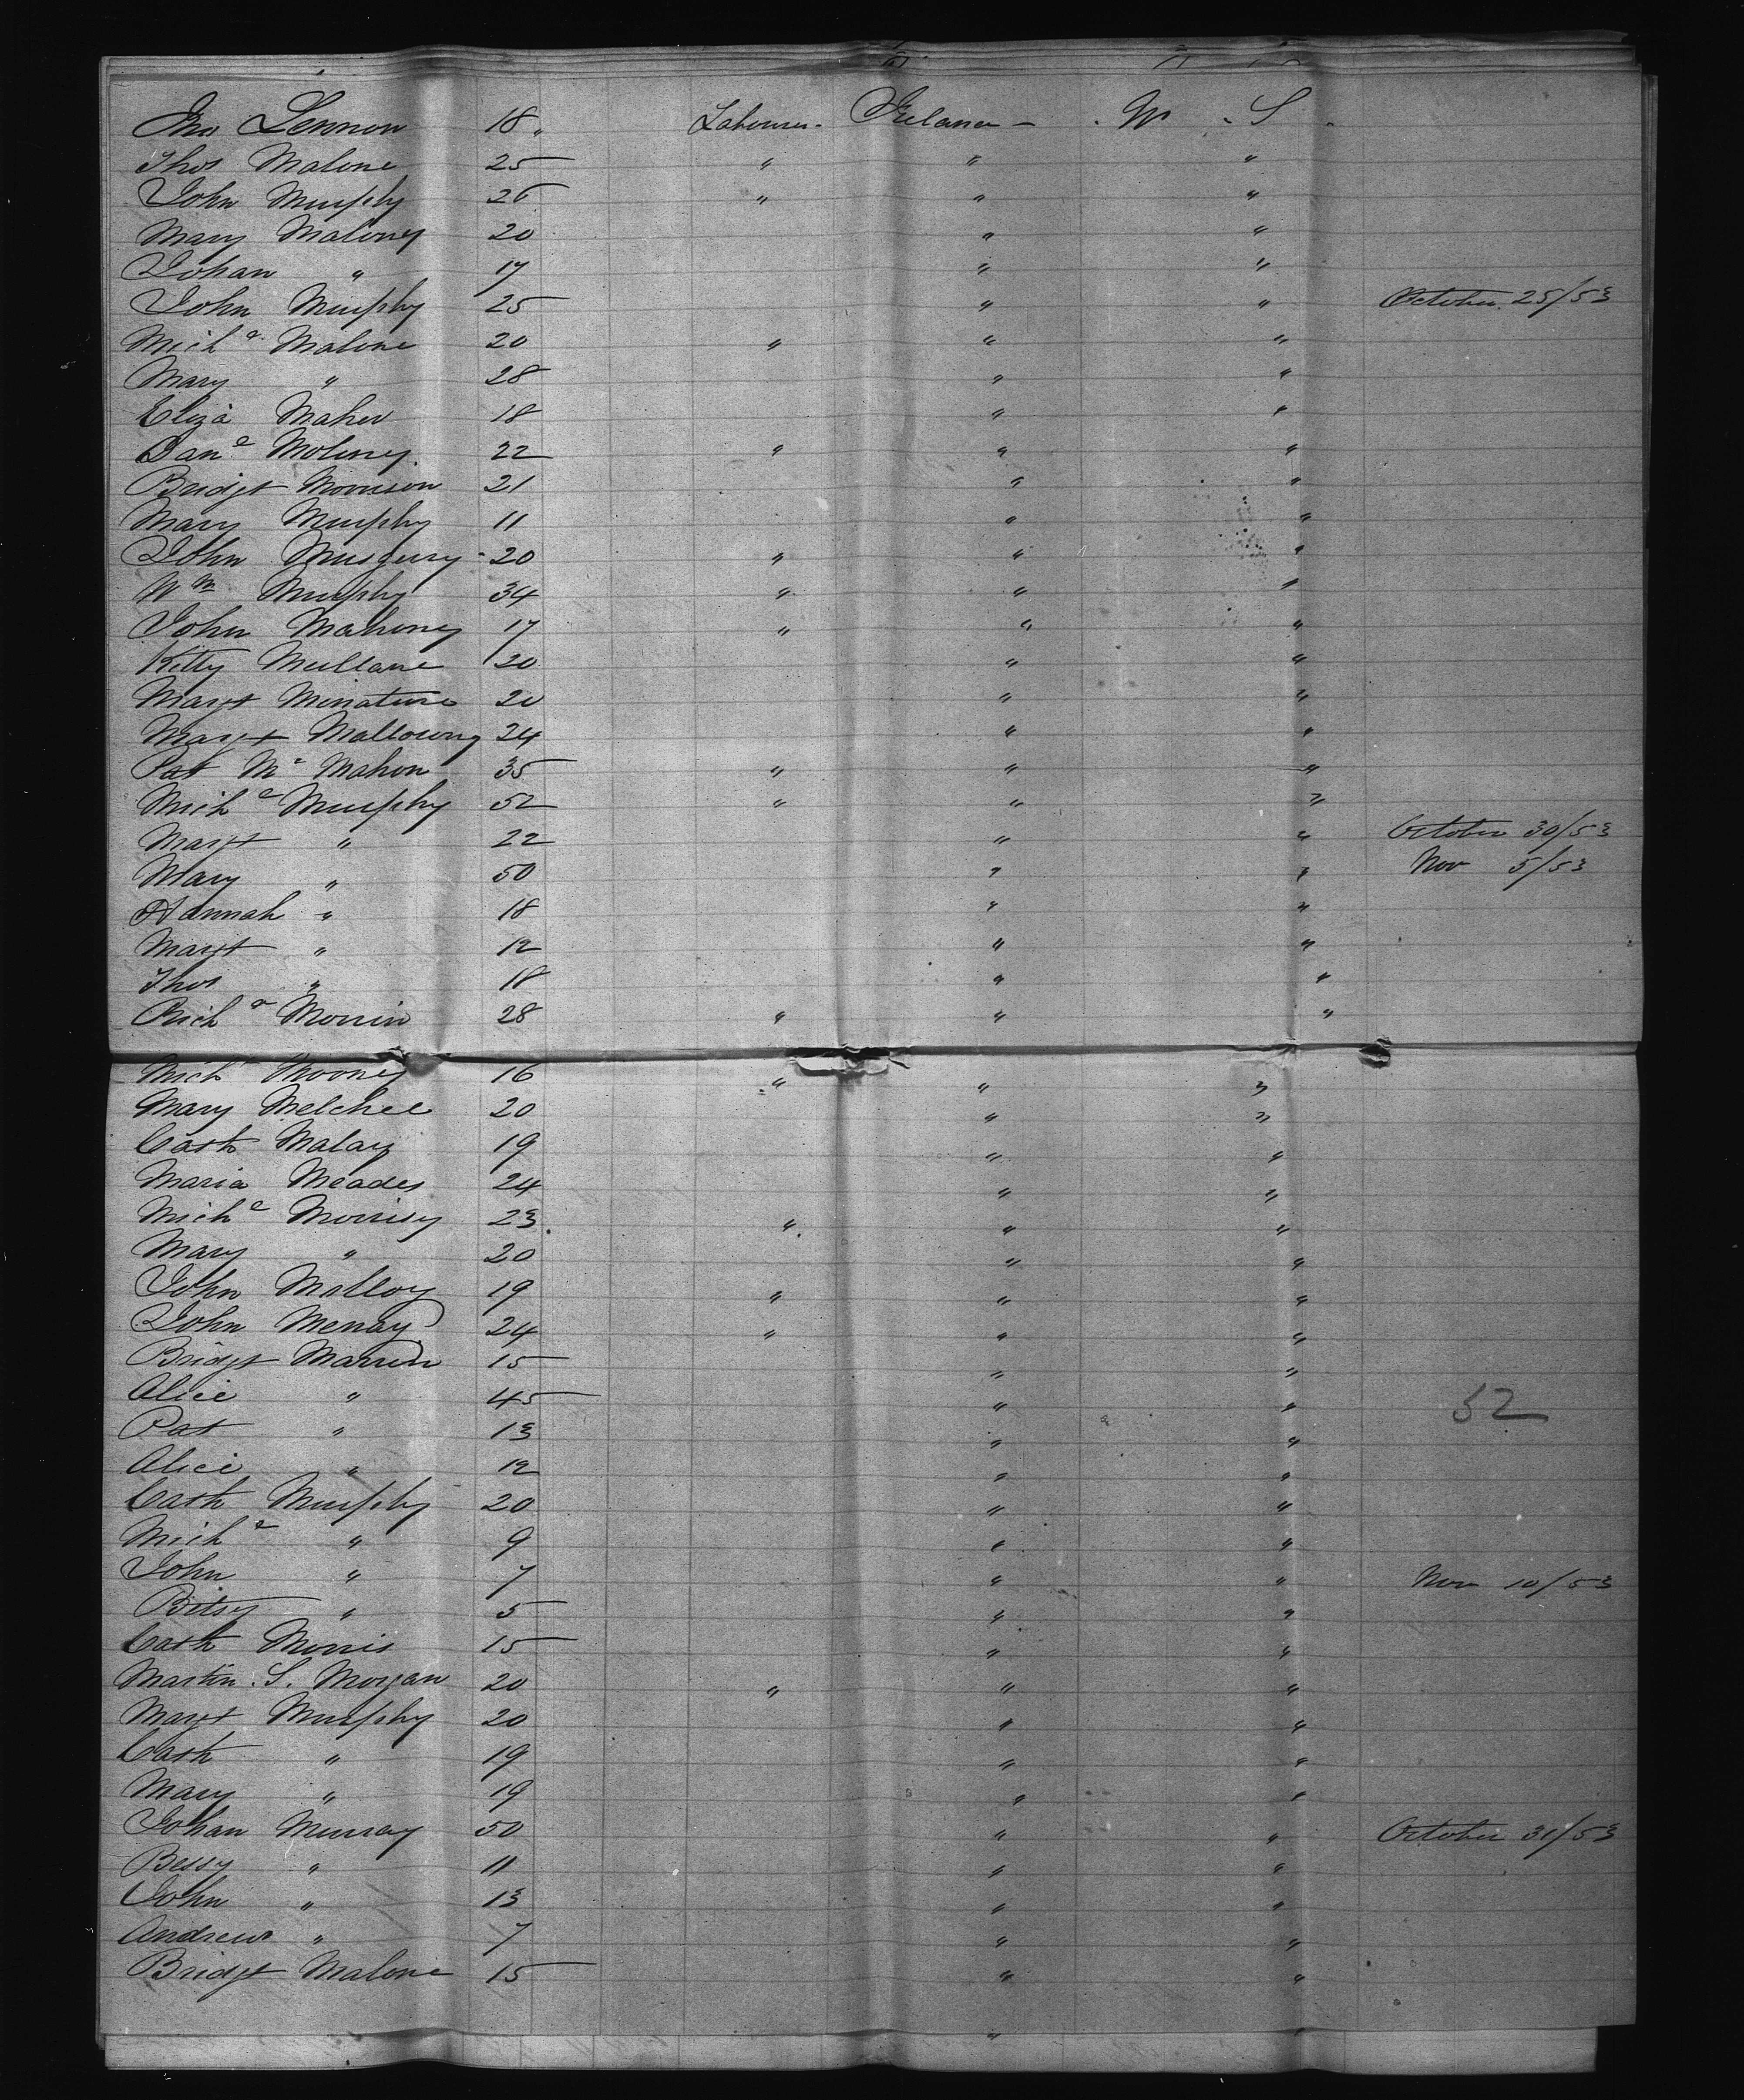 Jno Lennon 18 " Labourer - Ireland - . M . S .
Thos Malone 25 " " "
John Murphy 26 " " "
Mary Maloney 20 " "
Johan " 17 " "
John Murphy 25 " " October 25/53
Michl Malone 20 " " "
Mary " 28 " "
Eliza Maher 18 " "
Danl Moloney 22 " " "
Bridgt Morrison 21 " "
Mary Murphy 11 " "
John 20 " " "
Wm Murphy 34 " " "
John Mahoney 17 " " "
Kitty Mullane 20 " "
Margt 20 " "
Margt Mallowny 24 " "
Pat Mc Mahon 35 " " "
Michl Murphy 52 " " "
Margt " 22 " " October 30/53
Mary " 50 " " Nov 5/53
Hannah " 18 " "
Margt " 12 " "
Thos " 18 " "
Richd Morrin 28 " " "
Michl Mooney 16 " " "
Mary Melchee 20 " "
Cath Malay 19 " "
Maria Meades 24 " "
Michl Morrisy 23 " " "
Mary " 20 " "
John Malloy 19 " " "
John Menay 24 " " "
Bridgt Marrin 15 " "
Alice " 45 " " 52
Pat " 13 " "
Alice " 12 " "
Cath Murphy 20 " "
Michl " 9 " "
John " 7 " " Nov 10/53
Bitsy " 5 " "
Cath Morris 15 " "
Martin . S . Morgan 20 " " "
Margt Murphy 20 " "
Cath " 19 " "
Mary " 19 " "
Johan Murray 50 " " October 31/53
Bessy " 11 " "
John " 13 " "
Andrew " 7 " "
Bridgt Malone 15 " "
"